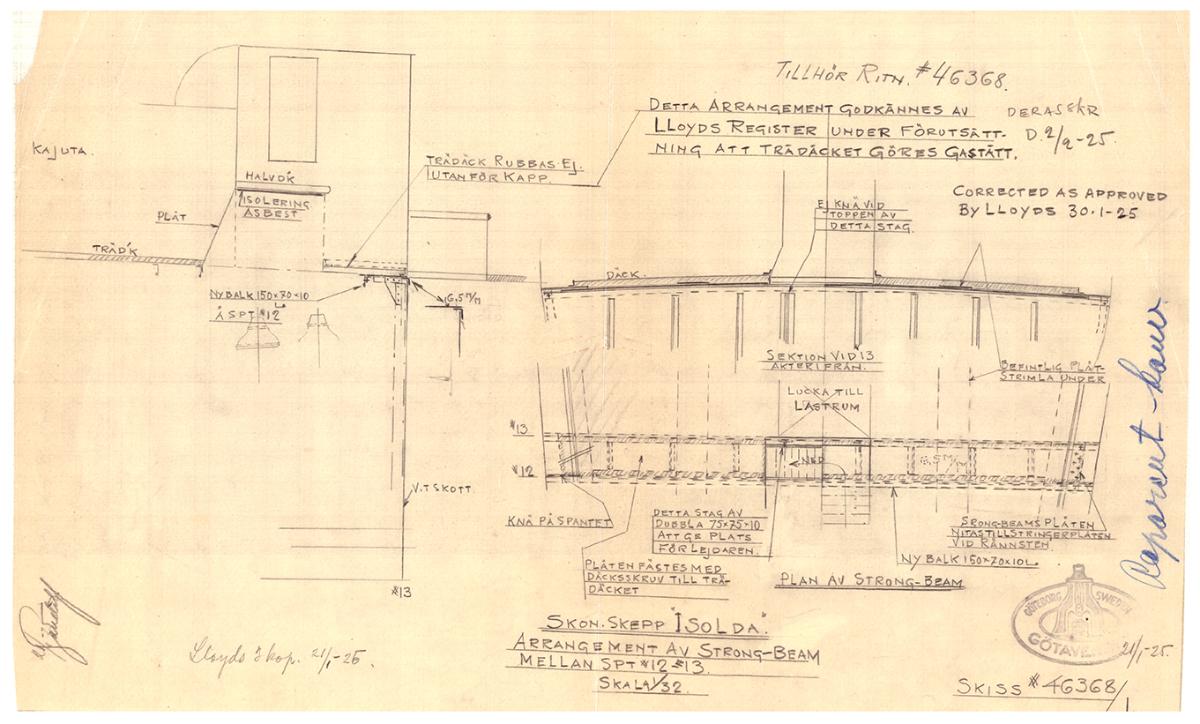 TILLHÖR RITN. #46368.
DETTA ARRANGEMENT GODKÄNNES AV
LLOYDS REGISTER UNDER FÖRUTSÄTT-
NING ATT TRÄDÄCKET GÖRES GASTÄTT.
DERAS SKR
D. 2/9-25.
CORRECTED AS APPROVED
BY LLOYDS 30.1-25
KAJUTA.
HALVD'K
ISOLERING
ASBEST
PLÅT
TRÄD'K
TRÄDÄCK RUBBAS EJ.
UTANFÖR KAPP.
NY BALK 150×70×10
Å SPT #12
6,5 M/M
V.T SKOTT.
#13
EJ KNÄ VID
TOPPEN AV
DETTA STAG.
DÄCK.
SEKTION VID 13
AKTERIFRÅN.
BEFINTLIG PLÅT-
STRIMLA UNDER
LUCKA TILL
LASTRUM
#13
#12
NED
6,5 M/M
KNÄ PÅ SPANTET
DETTA STAG AV
DUBBLA 75×75×10
ATT GE PLATS
FÖR LEJDAREN.
STRONG-BEAMS PLÅTEN
NITAS TILL STRINGERPLÅTEN
VID RÄNNSTEN.
NY BALK 150×70×10 L
PLÅTEN FÄSTES MED
DÄCKSSKRUV TILL TRÄ-
DÄCKET
PLAN AV STRONG-BEAM
SKON. SKEPP "ISOLDA".
ARRANGEMENT AV STRONG-BEAM
MELLAN SPT #12-#13.
SKALA 1/32.
Lloyds 3 kop. 21/1-25.
GÖTEBORG SWEDEN
GÖTAVE
21/1-25.
SKISS #46368/1